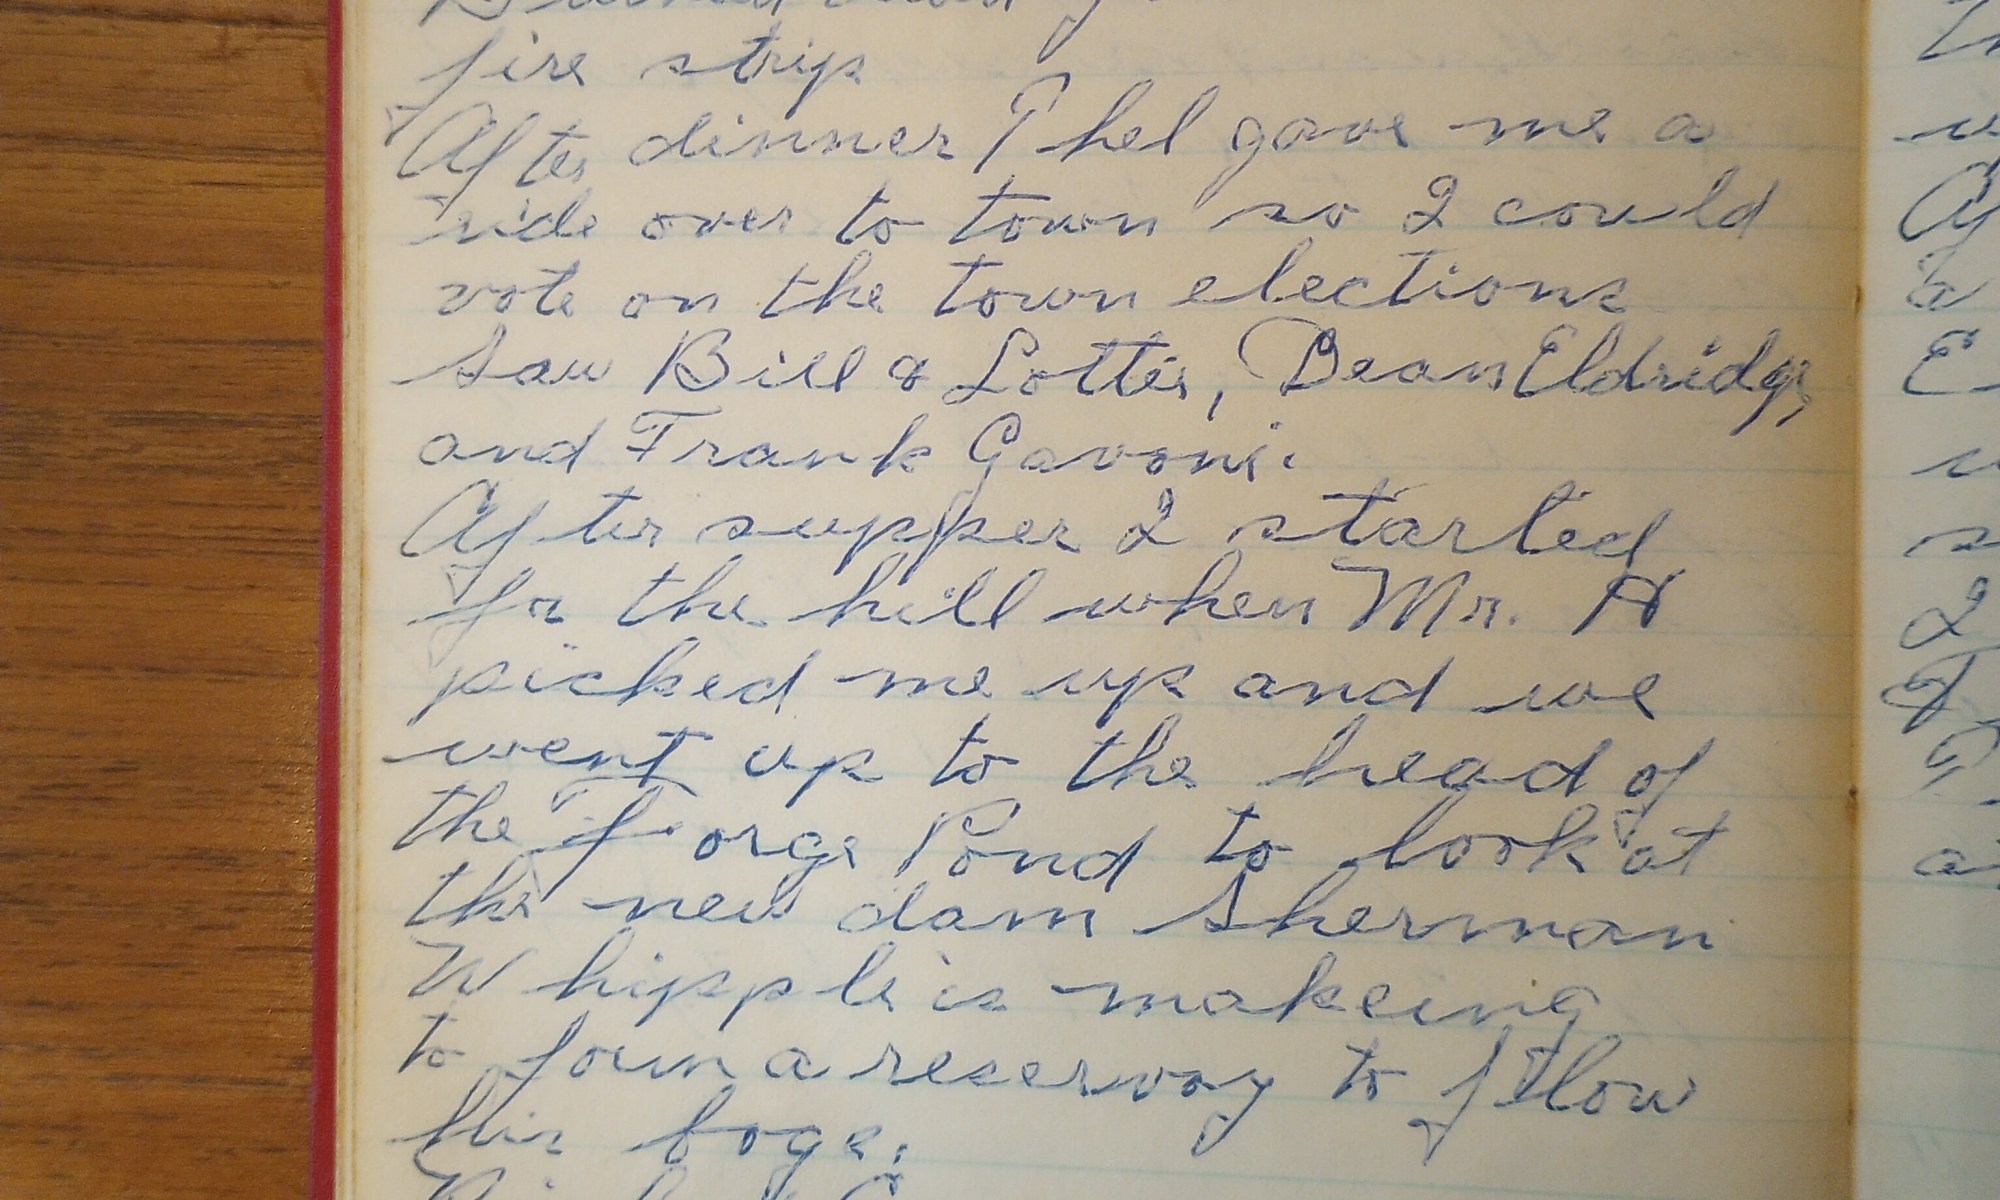 fire strip
After dinner Phel gave me a
ride over to town so I could
vote on the town elections
Saw Bill & Lottie, Bean Eldridge,
and Frank Gavoni.
After supper I started
for the hill when Mr. H
picked me up and we
went up to the head of
the Forge Pond to look at
the new dam Sherman
Whipple is makeing
to form a reservoy to flow
his boge.